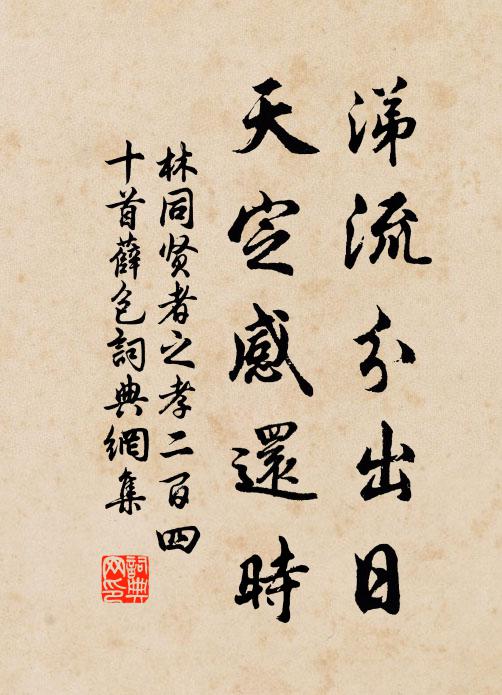 涕流分出日
天定感還時
林同贤者之孝二百四
十首薛包詞典網集
詞典
网印